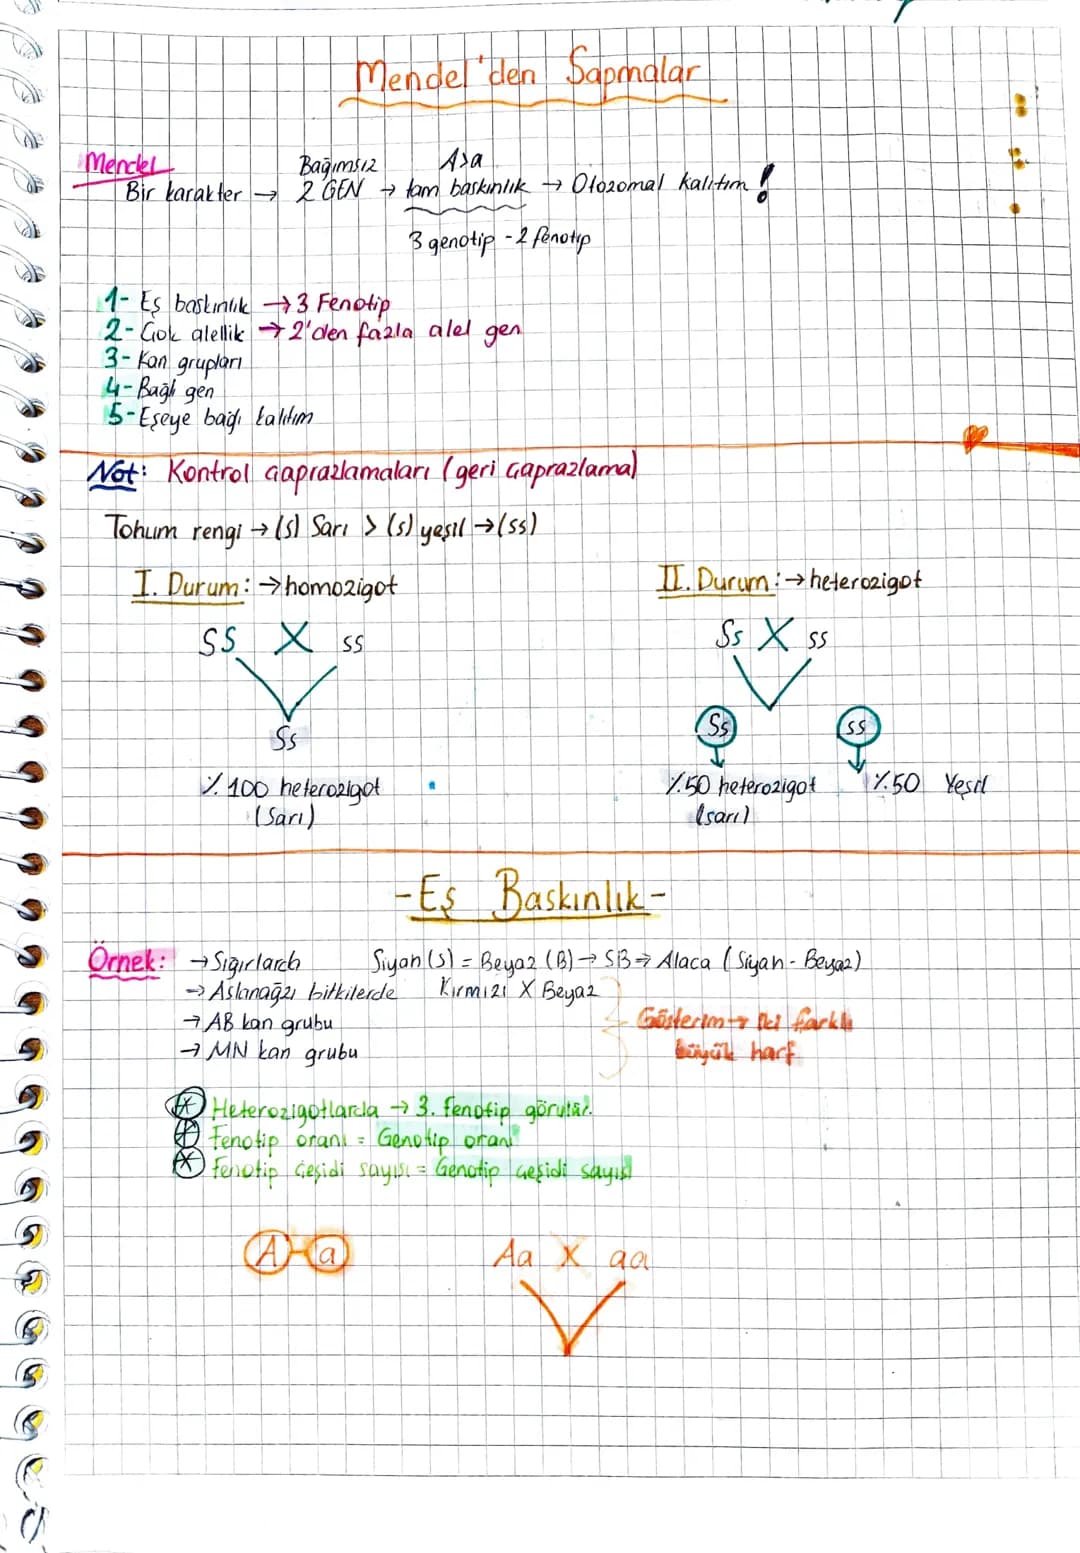 Mendel'den Sapmalar
Mendel
Bağımsız A>a
Bir karakter → 2 GEN → tam baskınlık → Otozomal kalıtım !
3 genotip - 2 fenotip
1- Eş baskınlık → 3 Fenotip
2- Çok alellik → 2'den fazla alel gen
3- Kan grupları
4- Bağlı gen
5- Eşeye bağlı kalıtım
Not: Kontrol çaprazlamaları (geri çaprazlama)
Tohum rengi → (S) Sarı > (s) yeşil → (ss)
I. Durum: → homozigot
II. Durum: → heterozigot
SS X ss
Ss X ss
Ss
Ss ss
% 100 heterozigot
(Sarı)
%50 heterozigot %50 Yeşil
(sarı)
-Eş Baskınlık-
Örnek: → Sığırlarda Siyah (S) = Beyaz (B) → SB → Alaca (Siyah - Beyaz)
→ Aslanağzı bitkilerde Kırmızı X Beyaz
→ AB kan grubu
→ MN kan grubu
Gösterim → iki farklı
büyük harf
* Heterozigotlarda → 3. fenotip görülür.
* Fenotip oranı = Genotip oranı
* Fenotip çeşidi sayısı = Genotip çeşidi sayısı
A-a Aa X aa